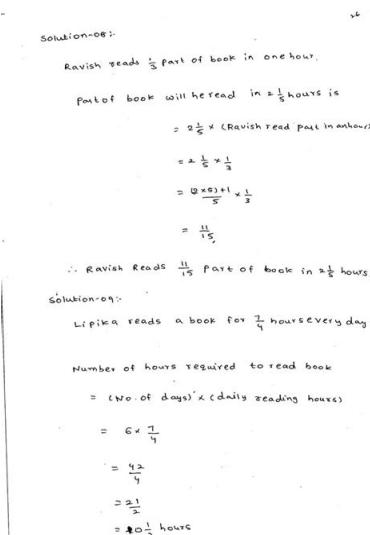 26
Solution-08:-
Ravish reads 1/3 part of book in one hour.
Part of book will he read in 2 1/5 hours is
= 2 1/5 × (Ravish read part in an hour)
= 2 1/5 × 1/3
= (2×5)+1/5 × 1/3
= 11/15
∴ Ravish Reads 11/15 part of book in 2 1/5 hours
Solution-09:-
Lipika reads a book for 7/4 hours every day
Number of hours required to read book
= (No. of days) × (daily reading hours)
= 6 × 7/4
= 42/4
= 21/2
= 10 1/2 hours